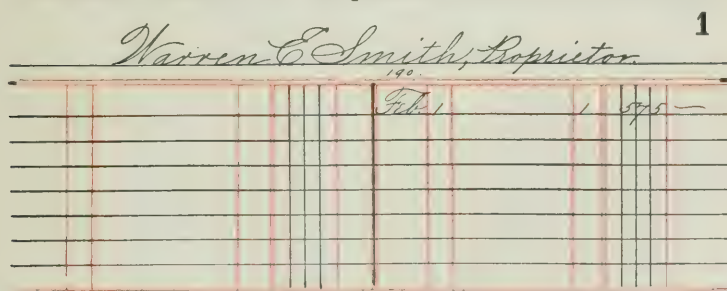 1
Warren E Smith, Proprietor.
190.
Feb. 1 1 575 —